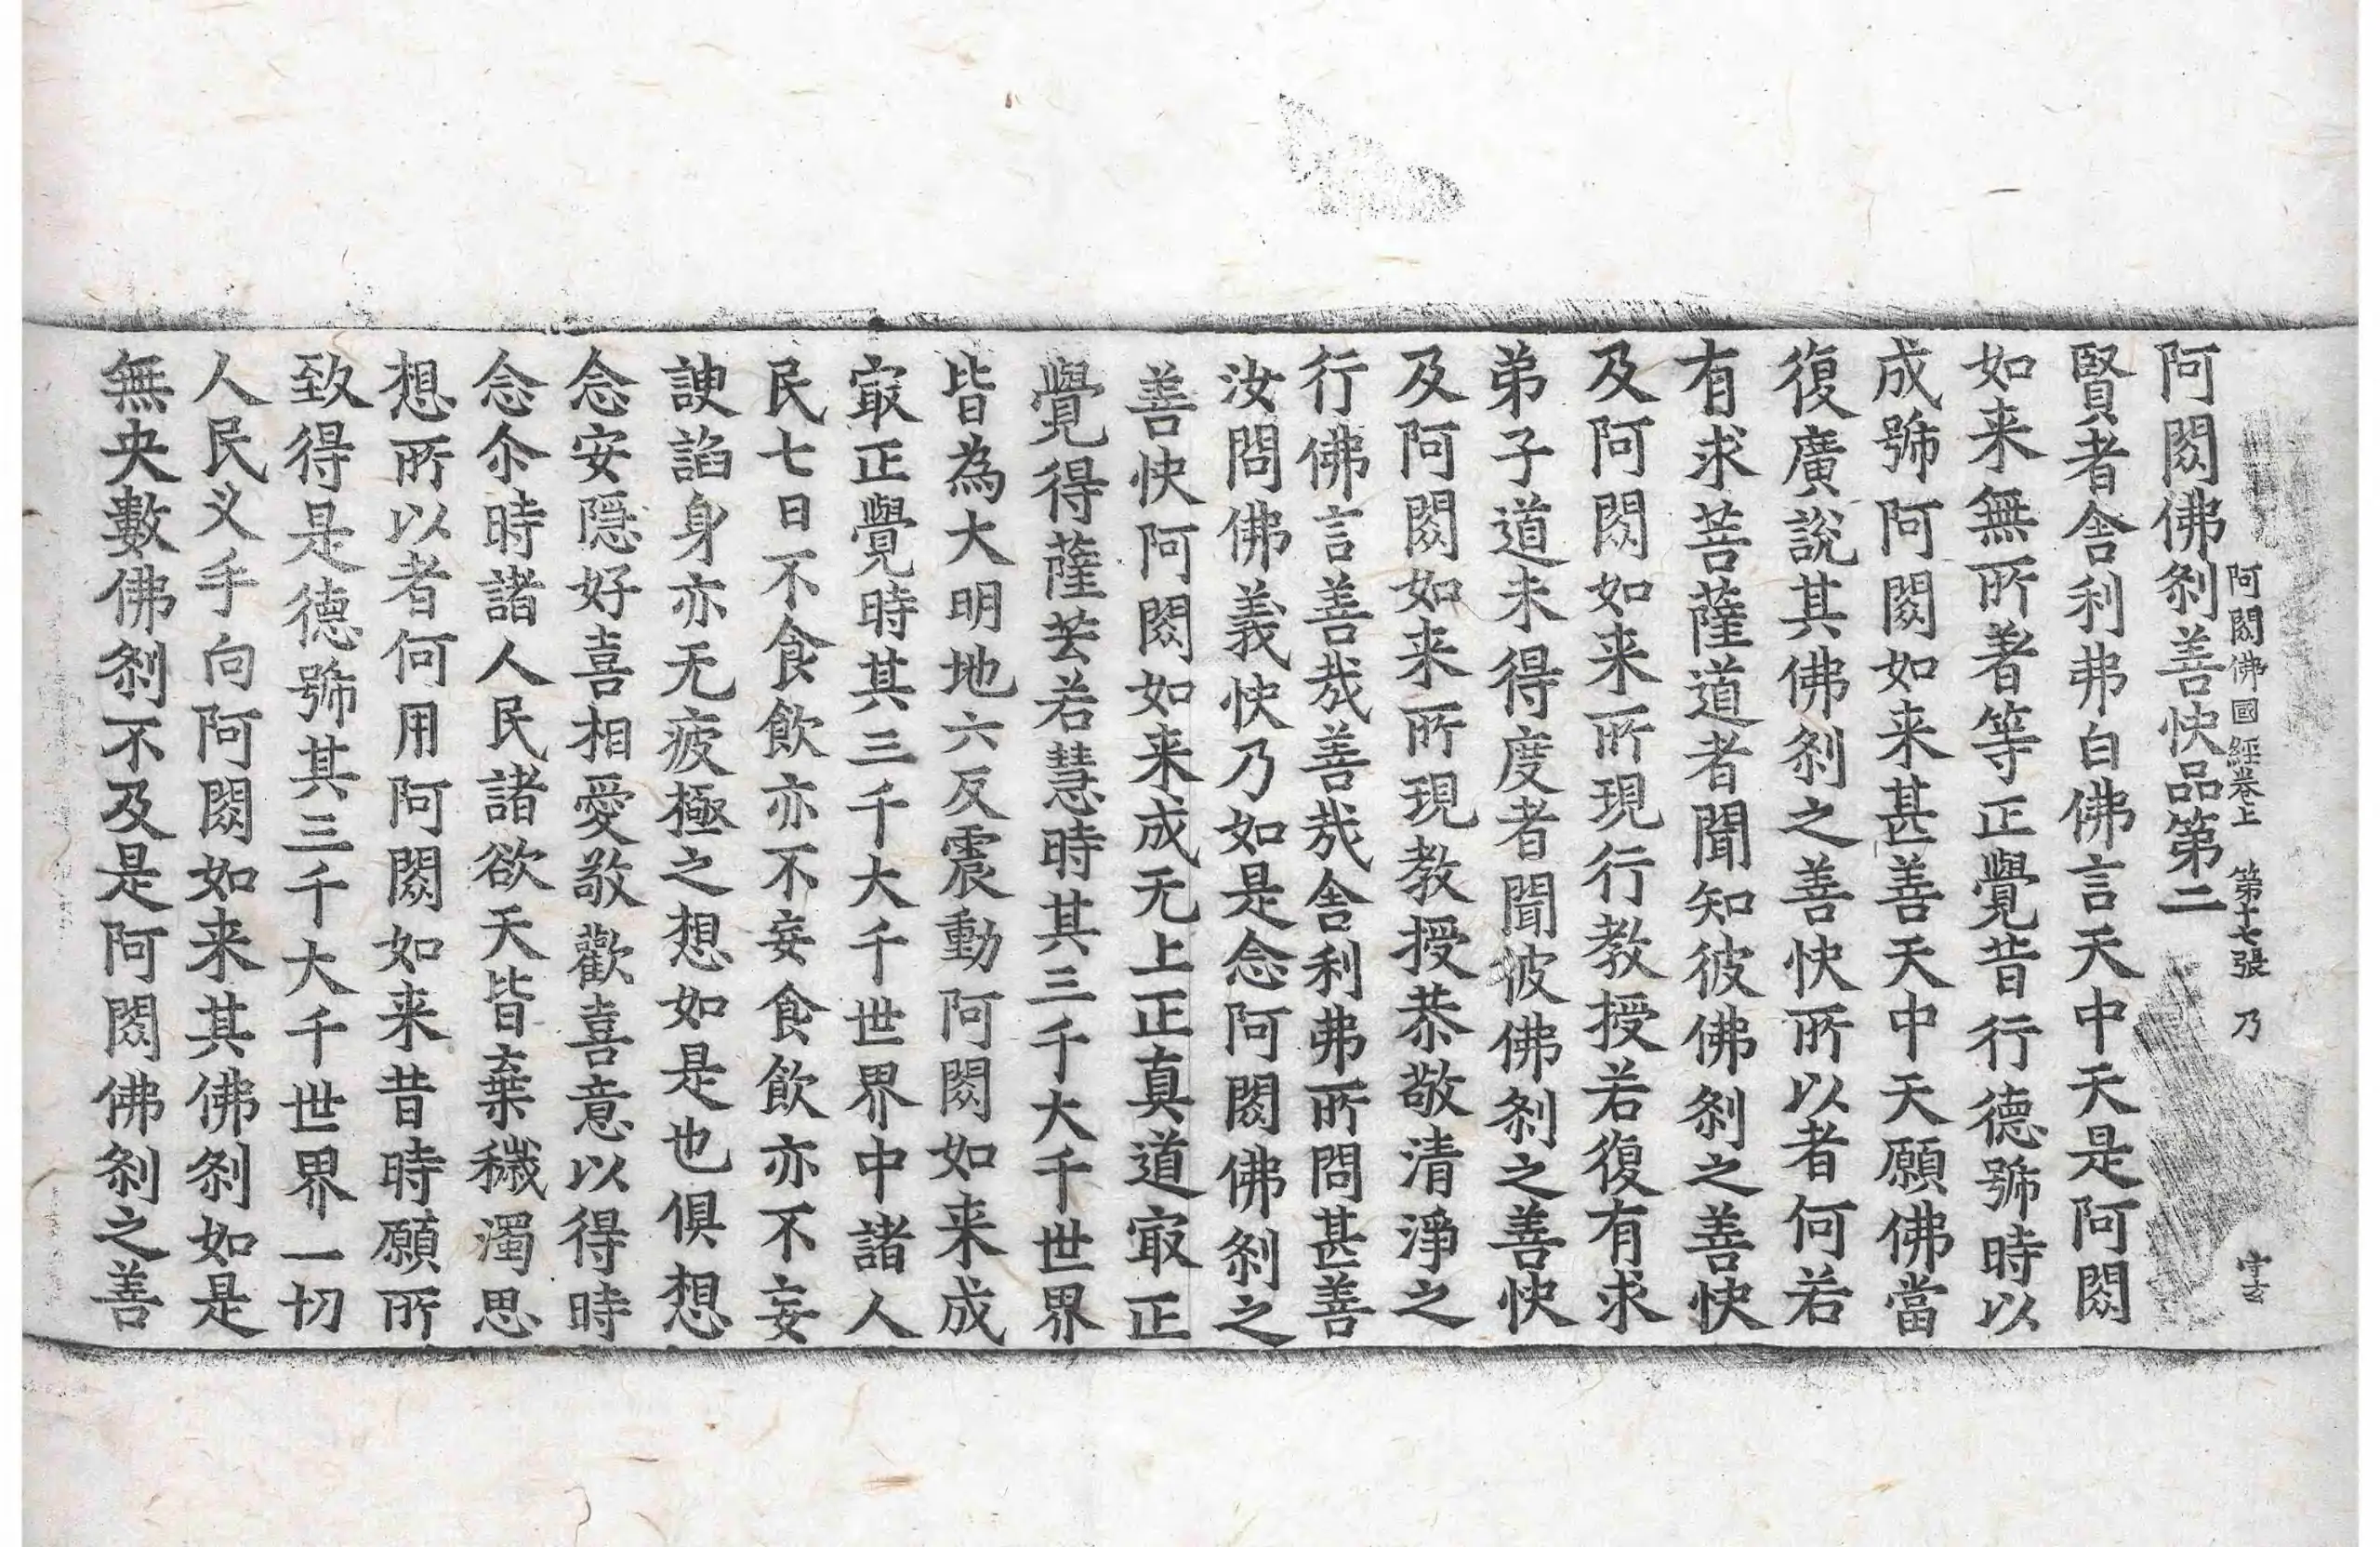 阿閦佛國経卷上　第十七張　乃
守玄
阿閦佛刹善快品第二
賢者舎利弗白佛言天中天是阿閦
如来無所著等正覺昔行德號時以
成號阿閦如来甚善天中天願佛當
復廣說其佛刹之善快所以者何若
有求菩薩道者聞知彼佛刹之善快
及阿閦如来所現行教授若復有求
弟子道未得度者聞彼佛刹之善快
及阿閦如来所現教授恭敬清淨之
行佛言善哉善哉舎利弗所問甚善
汝問佛義快乃如是念阿閦佛刹之
善快阿閦如来成无上正真道㝡正
覺得薩芸若慧時其三千大千世界
皆為大明地六反震動阿閦如来成
㝡正覺時其三千大千世界中諸人
民七日不食飲亦不妄食飲亦不妄
諛諂身亦无疲極之想如是也俱想
念安隠好喜相愛敬歡喜意以得時
念尒時諸人民諸欲天皆棄穢濁思
想所以者何用阿閦如来昔時願所
致得是德號其三千大千世界一切
人民义手向阿閦如来其佛刹如是
無央數佛刹不及是阿閦佛刹之善